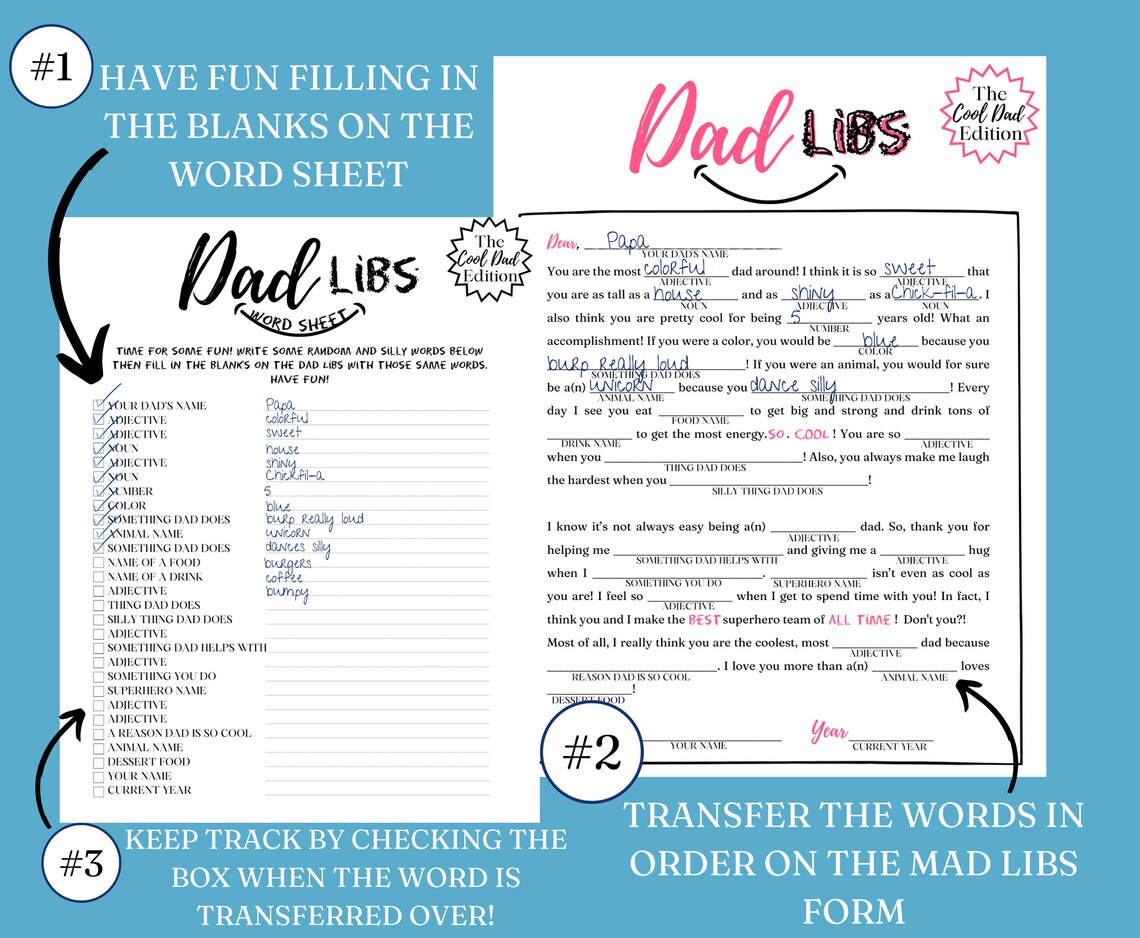 #1
HAVE FUN FILLING IN
THE BLANKS ON THE
WORD SHEET
Dad LiBS
WORD SHEET
The
Cool Dad
Edition
TIME FOR SOME FUN! WRITE SOME RANDOM AND SILLY WORDS BELOW
THEN FILL IN THE BLANKS ON THE DAD LIBS WITH THOSE SAME WORDS.
HAVE FUN!
YOUR DAD'S NAME Papa
ADJECTIVE colorful
ADJECTIVE sweet
NOUN house
ADJECTIVE shiny
NOUN Chickfil-a
NUMBER 5
COLOR blue
SOMETHING DAD DOES burp really loud
ANIMAL NAME unicorn
SOMETHING DAD DOES dances silly
NAME OF A FOOD burgers
NAME OF A DRINK coffee
ADJECTIVE bumpy
THING DAD DOES
SILLY THING DAD DOES
ADJECTIVE
SOMETHING DAD HELPS WITH
ADJECTIVE
SOMETHING YOU DO
SUPERHERO NAME
ADJECTIVE
ADJECTIVE
A REASON DAD IS SO COOL
ANIMAL NAME
DESSERT FOOD
YOUR NAME
CURRENT YEAR
#3
KEEP TRACK BY CHECKING THE
BOX WHEN THE WORD IS
TRANSFERRED OVER!
Dad LiBS
The
Cool Dad
Edition
Dear, Papa
YOUR DAD'S NAME
You are the most colorful dad around! I think it is so sweet that
ADJECTIVE ADJECTIVE
you are as tall as a house and as shiny as a Chick-fil-a. I
NOUN ADJECTIVE NOUN
also think you are pretty cool for being 5 years old! What an
NUMBER
accomplishment! If you were a color, you would be blue because you
COLOR
burp really loud! If you were an animal, you would for sure
SOMETHING DAD DOES
be a(n) unicorn because you dance silly! Every
ANIMAL NAME SOMETHING DAD DOES
day I see you eat to get big and strong and drink tons of
FOOD NAME
to get the most energy. SO. COOL! You are so
DRINK NAME ADJECTIVE
when you ! Also, you always make me laugh
THING DAD DOES
the hardest when you !
SILLY THING DAD DOES
I know it's not always easy being a(n) dad. So, thank you for
ADJECTIVE
helping me and giving me a hug
SOMETHING DAD HELPS WITH ADJECTIVE
when I . isn't even as cool as
SOMETHING YOU DO SUPERHERO NAME
you are! I feel so when I get to spend time with you! In fact, I
ADJECTIVE
think you and I make the BEST superhero team of ALL TIME! Don't you?!
Most of all, I really think you are the coolest, most dad because
ADJECTIVE
. I love you more than a(n) loves
REASON DAD IS SO COOL ANIMAL NAME
!
DESSERT FOOD
Year
YOUR NAME CURRENT YEAR
#2
TRANSFER THE WORDS IN
ORDER ON THE MAD LIBS
FORM